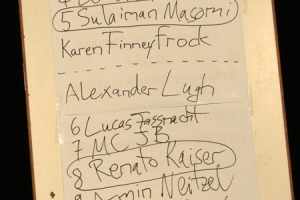 5 Sulaiman Masomi
Karen Finneyfrock
Alexander Lugh
6 Lucas Fassnacht
7 MC JB
8 Renato Kaiser
9 Armin Neitzel